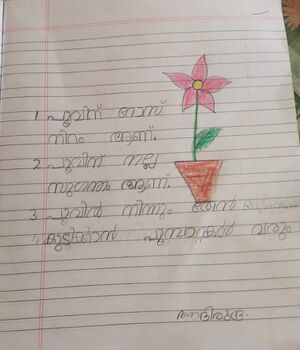 1 പൂവിന് റോസ്
നിറം ആണ്.
2 പൂവിന് നല്ല
സുഗന്ധം ആണ്.
3 പൂവിൽ നിന്നും തേൻ
കുടിക്കാൻ പൂമ്പാറ്റകൾ വരും